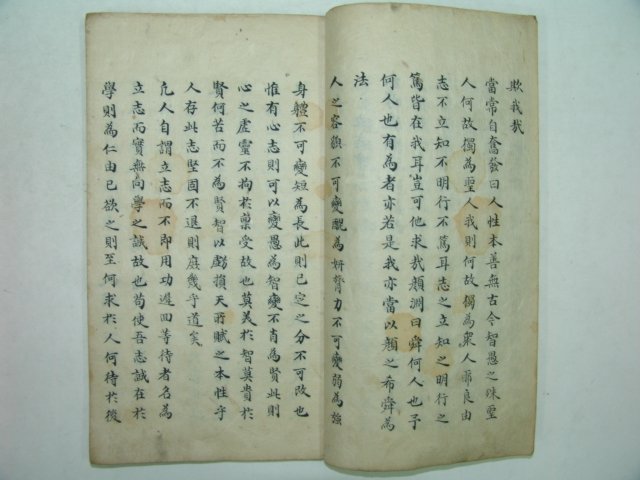 欺我哉
當常自奮發曰人性本善無古今智愚之殊聖
人何故獨為聖人我則何故獨為衆人耶良由
志不立知不明行不篤耳志之立知之明行之
篤皆在我耳豈可他求哉顔淵曰舜何人也予
何人也有為者亦若是我亦當以顔之希舜為
法
人之容貌不可變醜為妍膂力不可變弱為強
身體不可變短為長此則已定之分不可改也
惟有心志則可以變愚為智變不肖為賢此則
心之虛靈不拘於稟受故也莫美於智莫貴於
賢何苦而不為賢智以虧損天所賦之本性乎
人存此志堅固不退則庶幾乎道矣
凡人自謂立志而不即用功遲回等待者名為
立志而實無向學之誠故也苟使吾志誠在於
學則為仁由己欲之則至何求於人何待於後